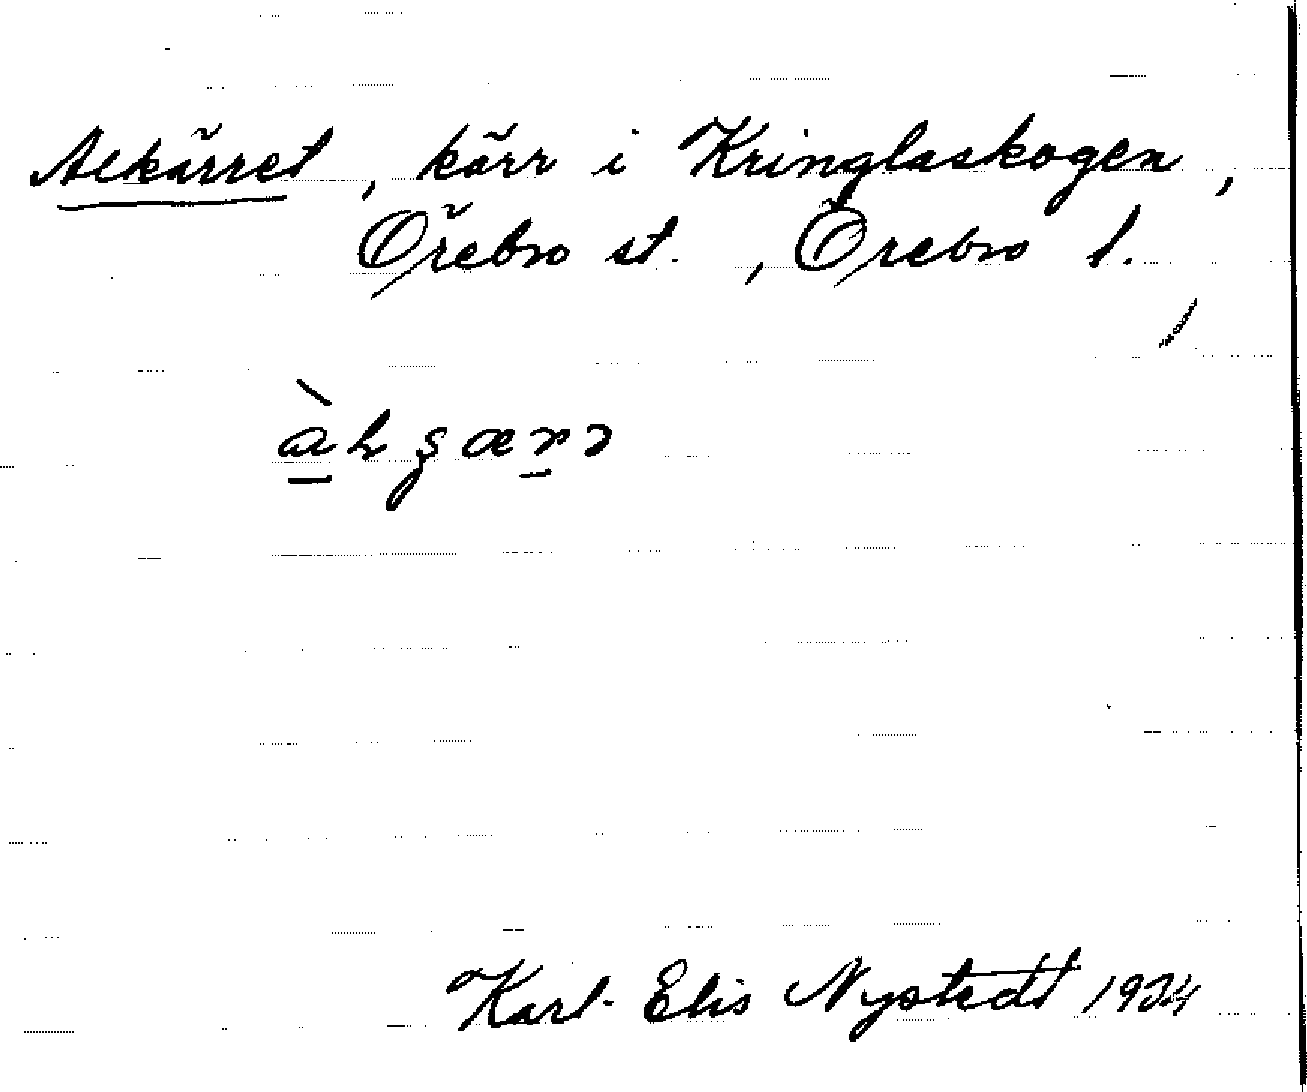 Alkärret, kärr i Kringlaskogen,
Örebro st., Örebro l.
Karl-Elis Nystedt 1924